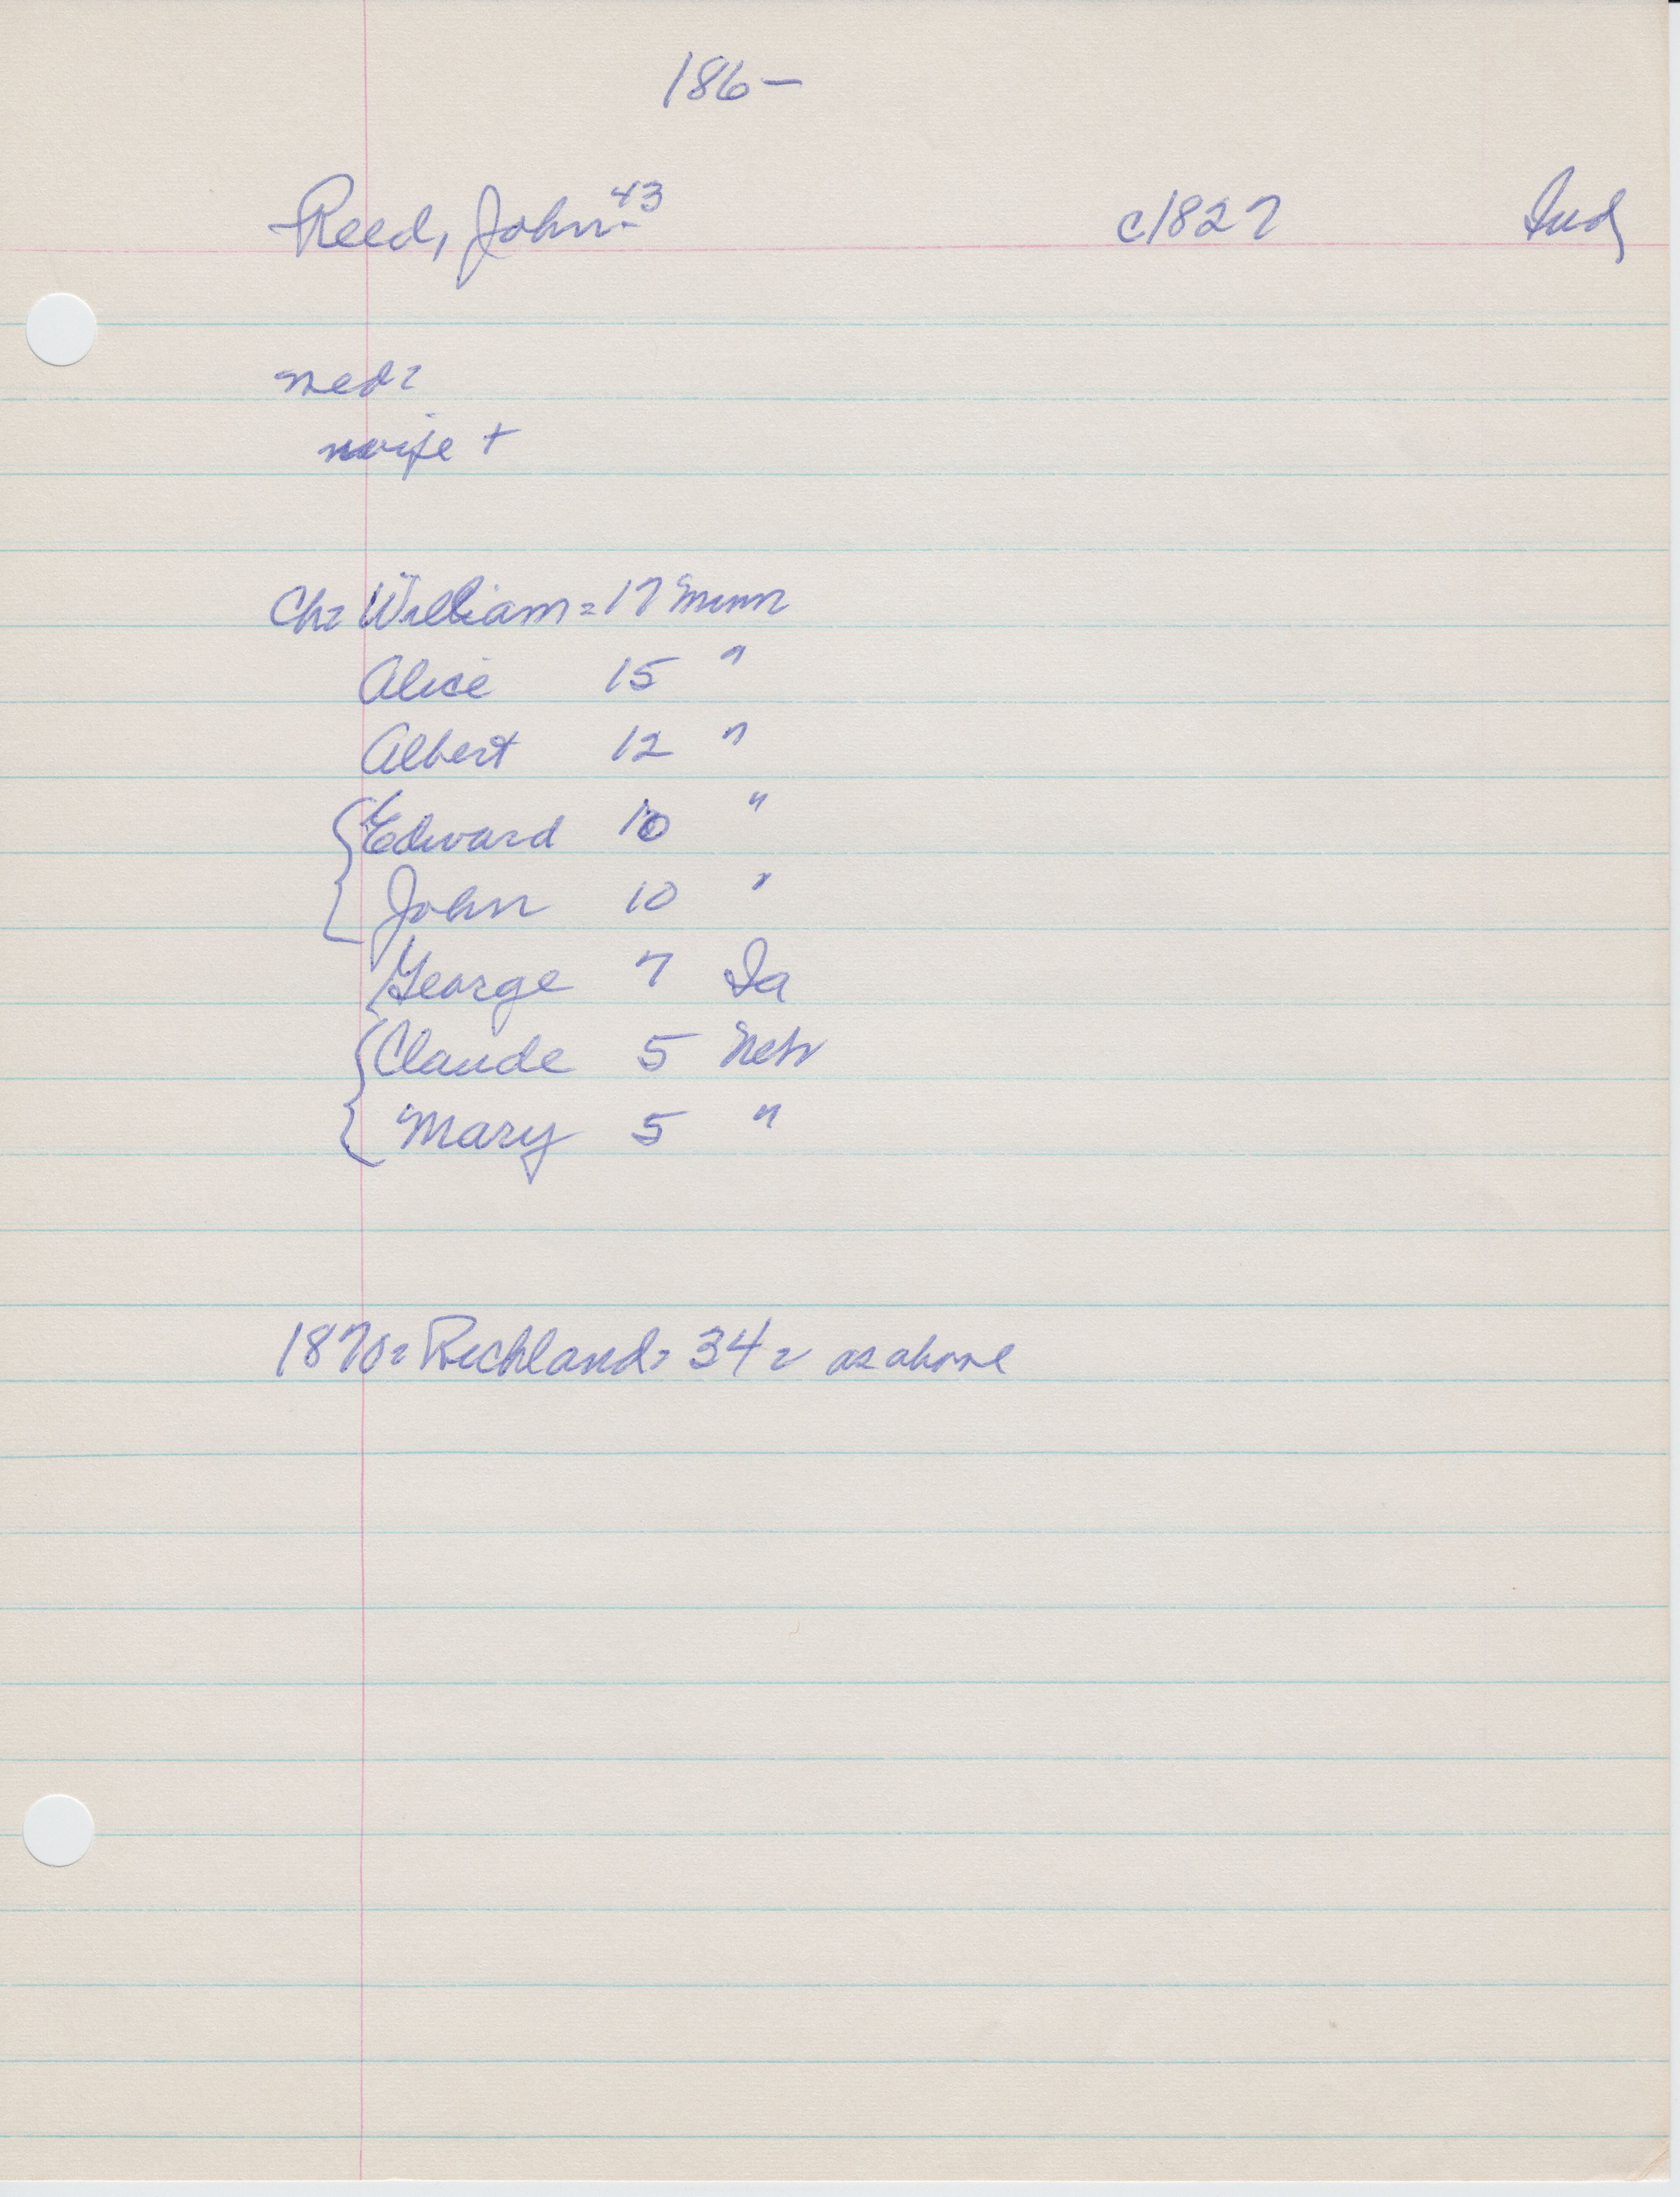 186-
Reed, John 43 c1827 Ind
med=
wife +
Ch= William = 17 Minn
Alice 15 "
Albert 12 "
Edward 10 "
John 10 "
George 7 Ia
Claude 5 Neb
Mary 5 "
1870= Richland= 34= as above